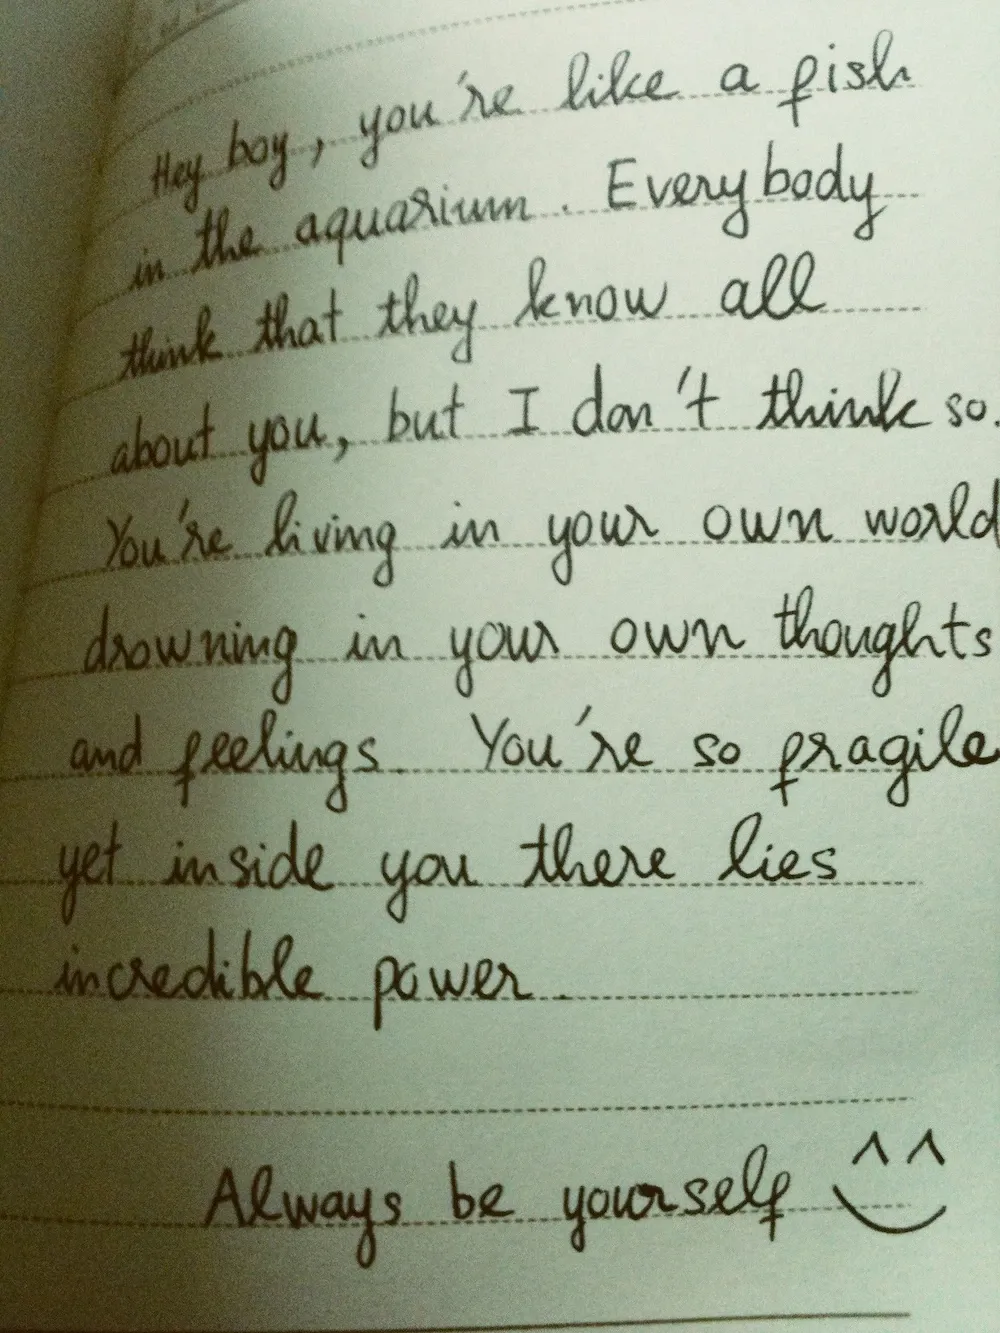 Hey boy, you're like a fish
in the aquarium. Everybody
think that they know all
about you, but I don't think so.
You're living in your own world
drowning in your own thoughts
and feelings. You're so fragile
yet inside you there lies
incredible power.
Always be yourself ^^